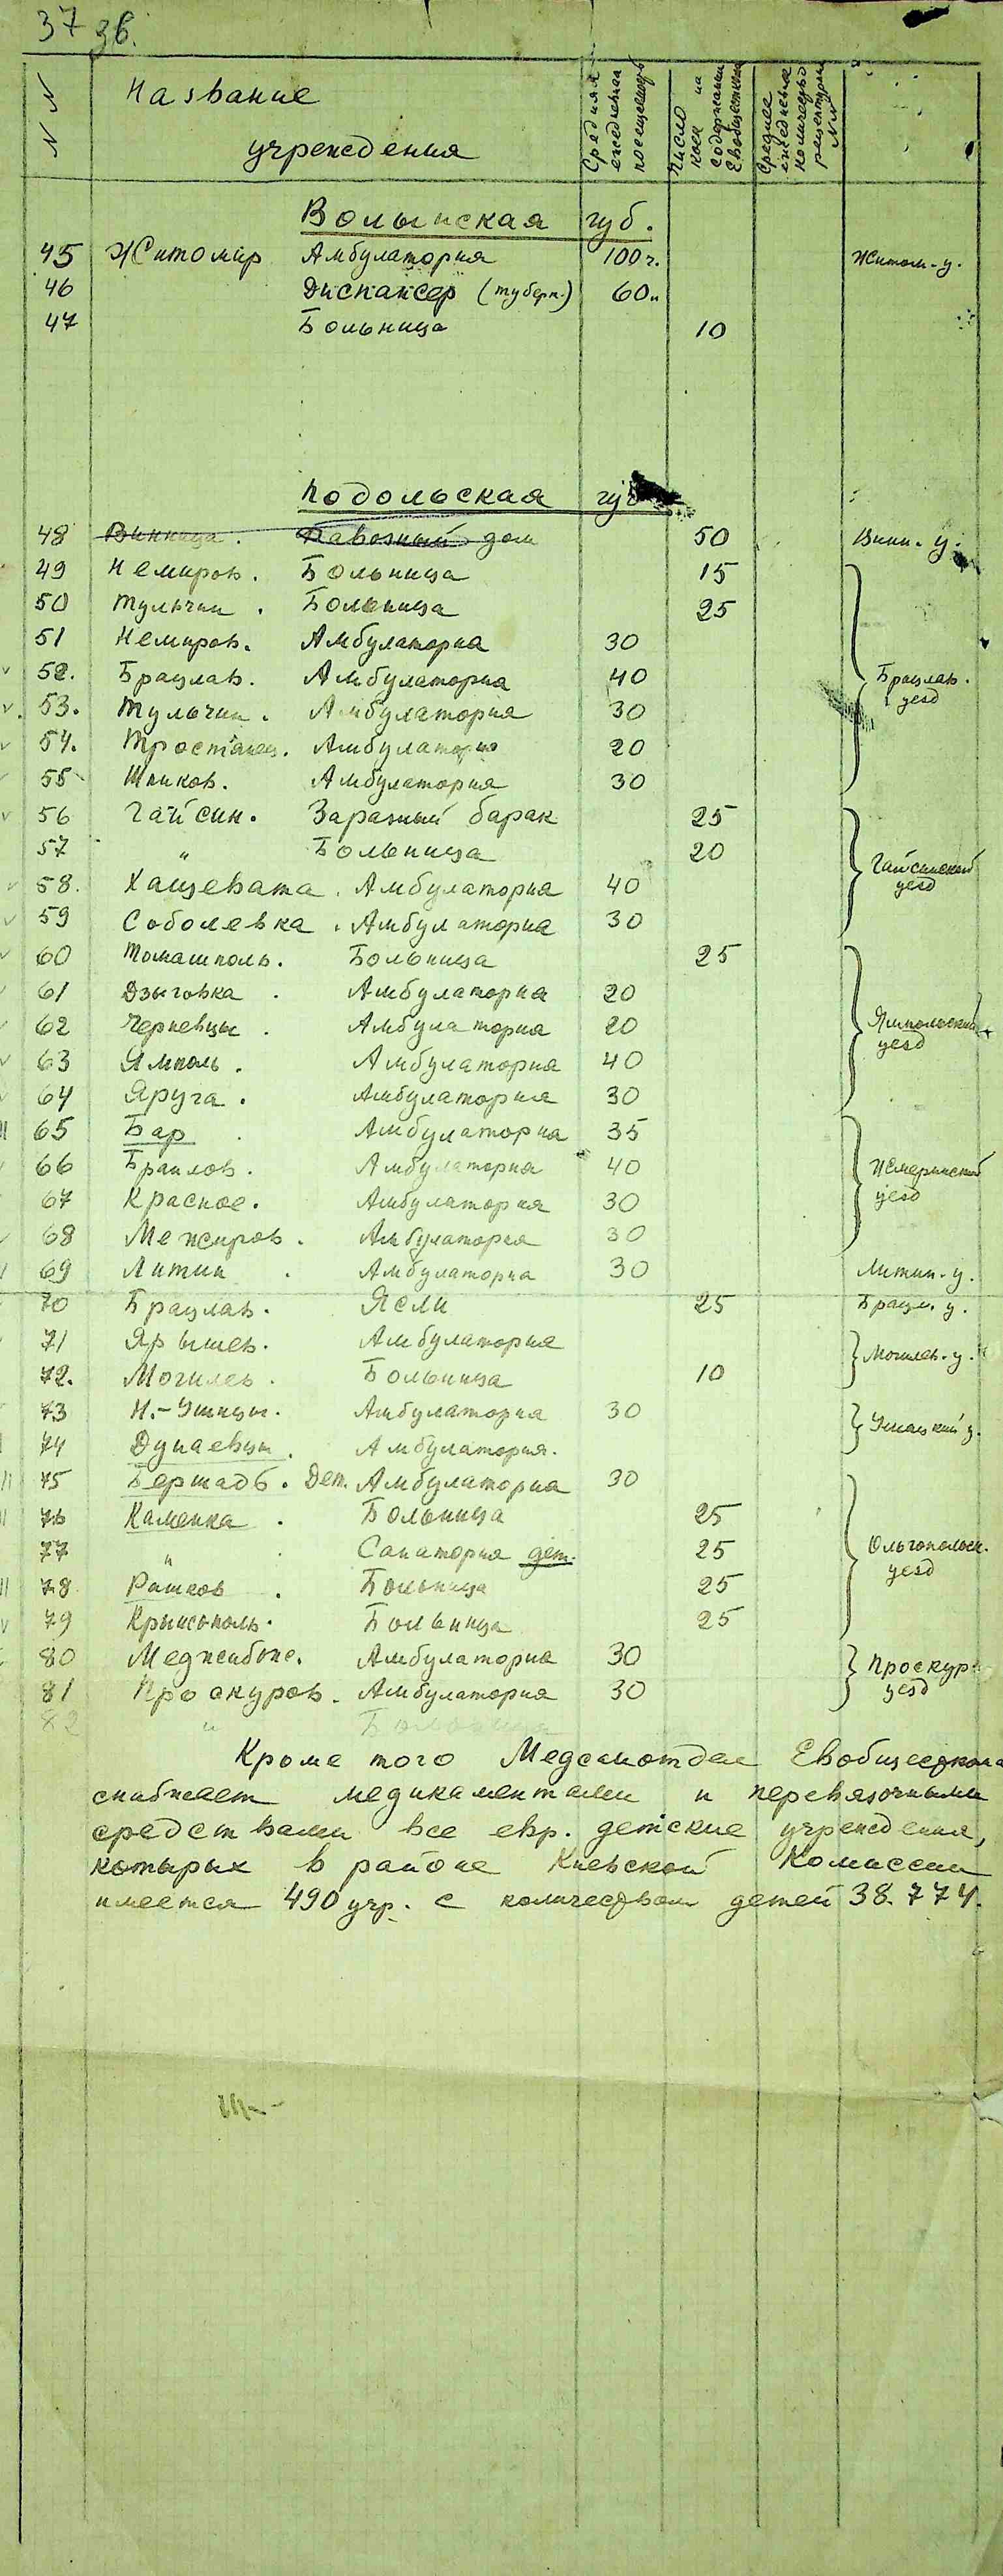 37 зв.
N N
Название
учреждения
Средняя
ежедневная
посещаемость
Число
коек на
содержании
Евобщесткома
Среднее
ежедневное
количество
рецептурных
NN
Волынская губ.
45 Житомир Амбулатория 100 ч. Житом. у.
46 Диспансер (туберк.) 60 "
47 Больница 10
Подольская губ
48 Винница. дом 50 Винн. у.
49 Немиров. Больница 15
50 Тульчин. Больница 25
51 Немиров. Амбулатория 30
52. Брацлав. Амбулатория 40 Брацлав. уезд
53. Тульчин. Амбулатория 30
54. Тростянец. Амбулатория 20
55 Шпиков. Амбулатория 30
56 Гайсин. Заразный барак 25
57 " Больница 20 Гайсинский уезд
58. Хащевата. Амбулатория 40
59 Соболевка. Амбулатория 30
60 Томашполь. Больница 25
61 Дзыговка. Амбулатория 20
62 Черневцы. Амбулатория 20 Ямпольский уезд
63 Ямполь. Амбулатория 40
64 Яруга. Амбулатория 30
65 Бар. Амбулатория 35
66 Браилов. Амбулатория 40 Жмеринский уезд
67 Красное. Амбулатория 30
68 Межиров. Амбулатория 30
69 Литин. Амбулатория 30 Литин. у.
70 Брацлав. Ясли 25 Брацл. у.
71 Ярышев. Амбулатория Могилев. у.
72. Могилев. Больница 10
73 Н.-Ушицы. Амбулатория 30 Ушицкий у.
74 Дунаевцы. Амбулатория.
75 Бершадь. Дет. Амбулатория 30
76 Каменка. Больница 25
77 " Санатория дет. 25 Ольгопольск. уезд
78 Рашков. Больница 25
79 Крыжополь. Больница 25
80 Меджибож. Амбулатория 30 Проскур. уезд
81 Проскуров. Амбулатория 30
82 " Больница
Кроме того Медсанотдел Евобщесткома
снабжает медикаментами и перевязочными
средствами все евр. детские учреждения,
которых в районе Киевской Комиссии
имеется 490 учр. с количеством детей 38.774.